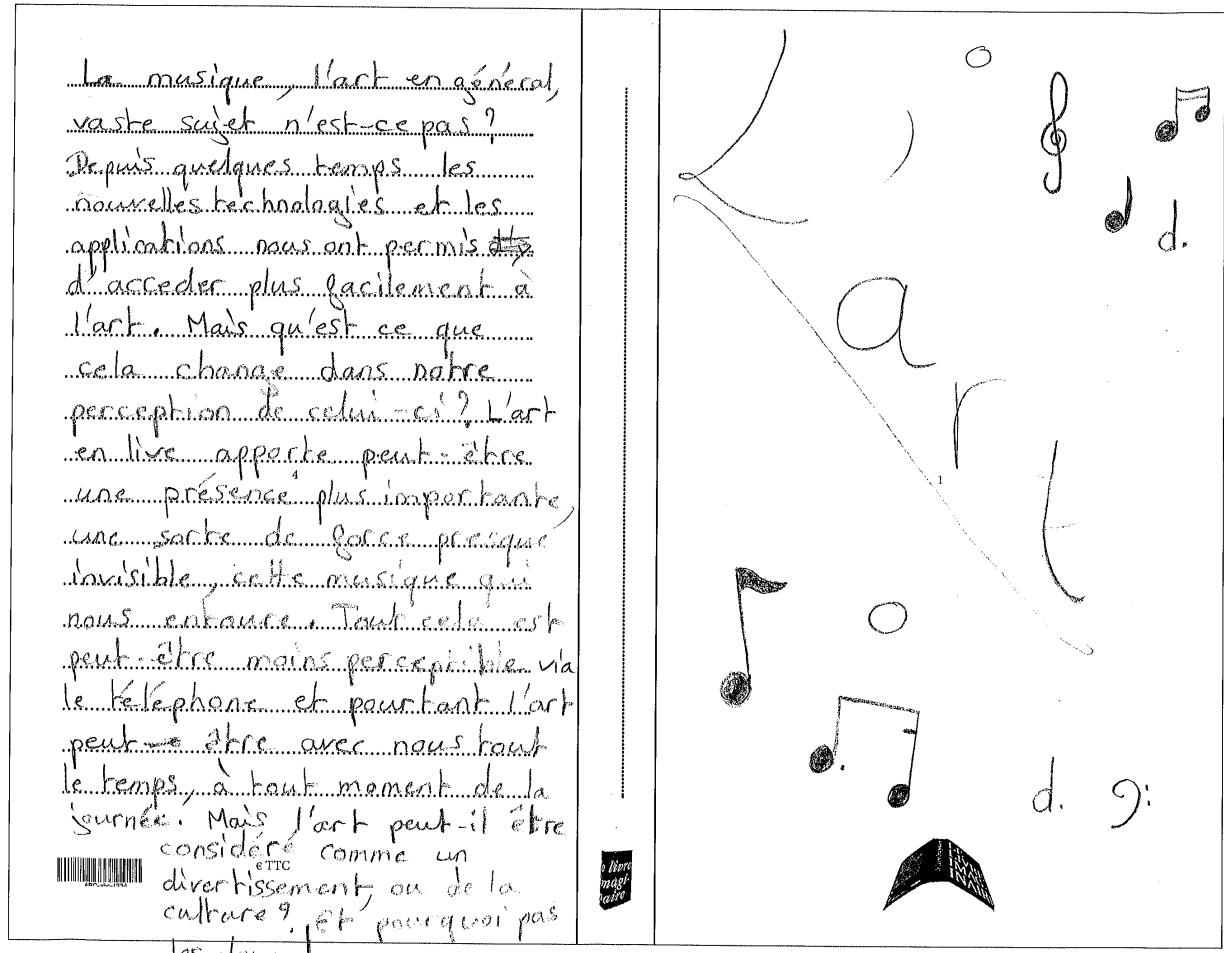 La musique, l'art en général,
vaste sujet n'est-ce pas ?
Depuis quelques temps les
nouvelles technologies et les
applications nous ont permis
d'acceder plus facilement à
l'art. Mais qu'est ce que
cela change dans notre
perception de celui-ci ? L'art
en live apporte peut-être
une présence plus importante,
une sorte de force presque
invisible, cette musique qui
nous entoure. Tout cela est
peut-être moins perceptible via
le téléphone et pourtant l'art
peut être avec nous tout
le temps, à tout moment de la
journée. Mais l'art peut-il être
considéré comme un
€ TTC
divertissement, ou de la
culture ? Et pourquoi pas
livre
imagi-
naire
L'art
1